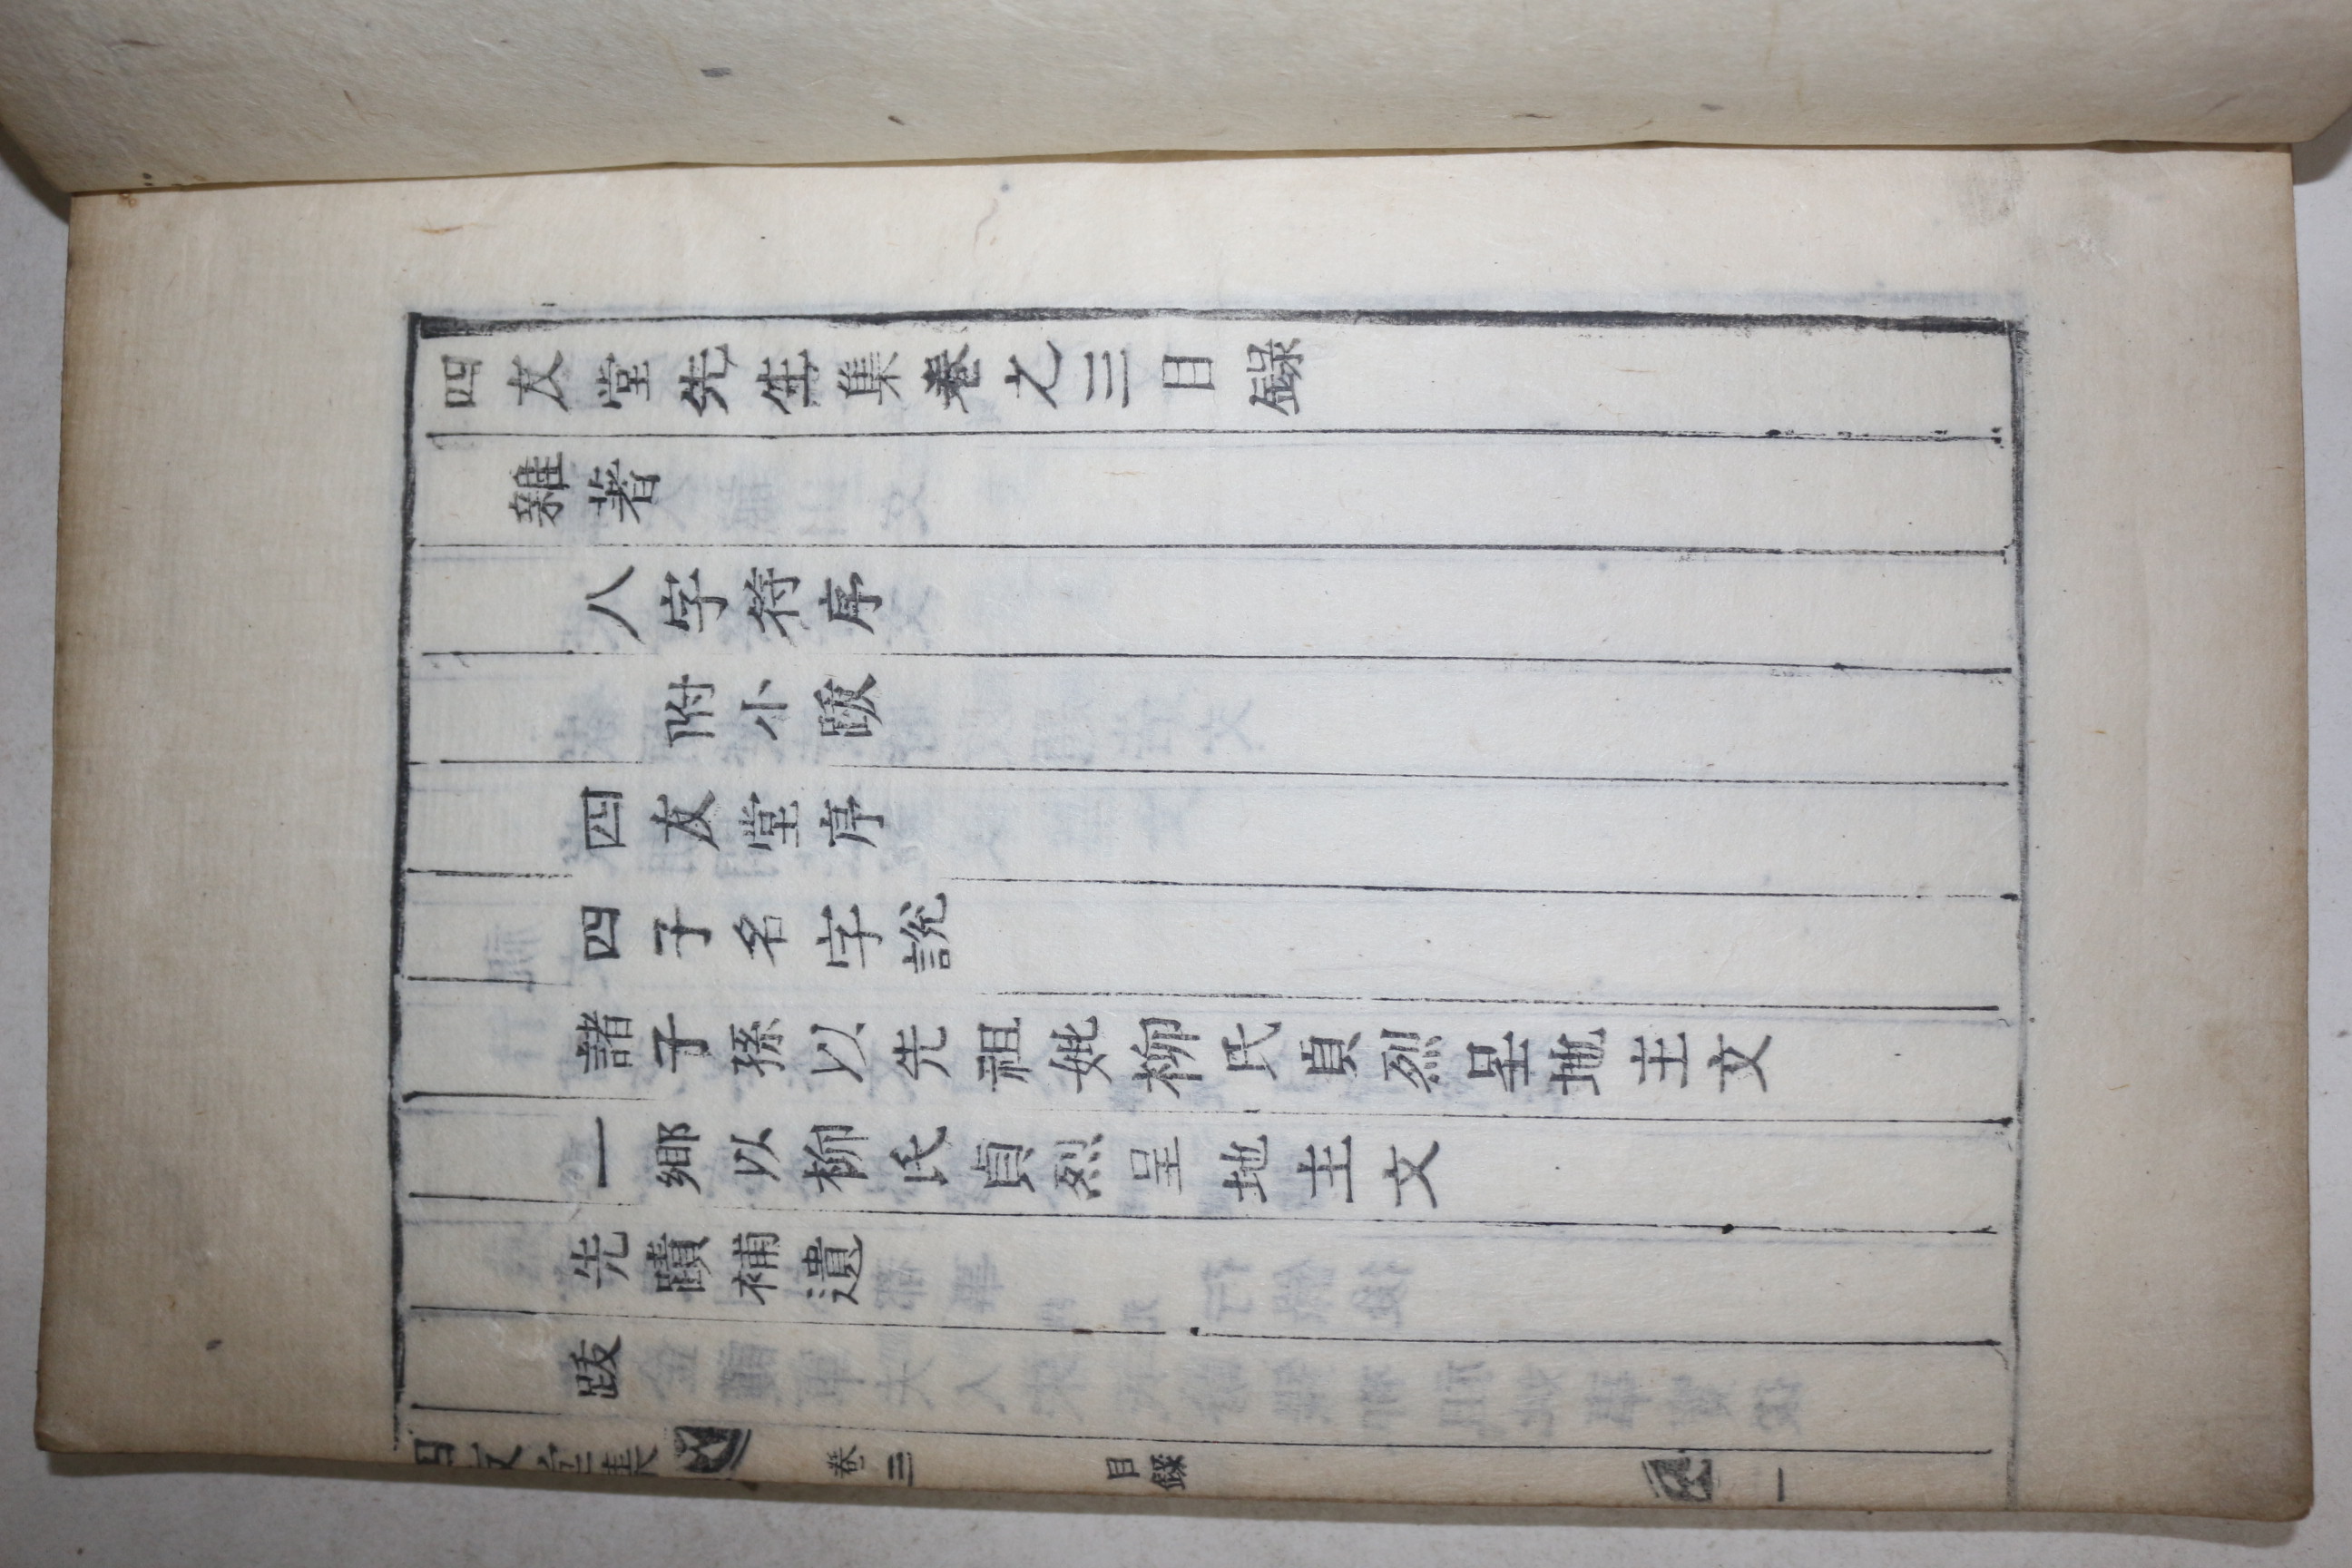 四友堂先生集卷之三目錄
雜著
八字符序
附小跋
四友堂序
四子名字說
諸子孫以先祖妣柳氏貞烈呈地主文
一鄉以柳氏貞烈呈地主文
先蹟補遺
跋
四友堂集 卷三 目錄 一